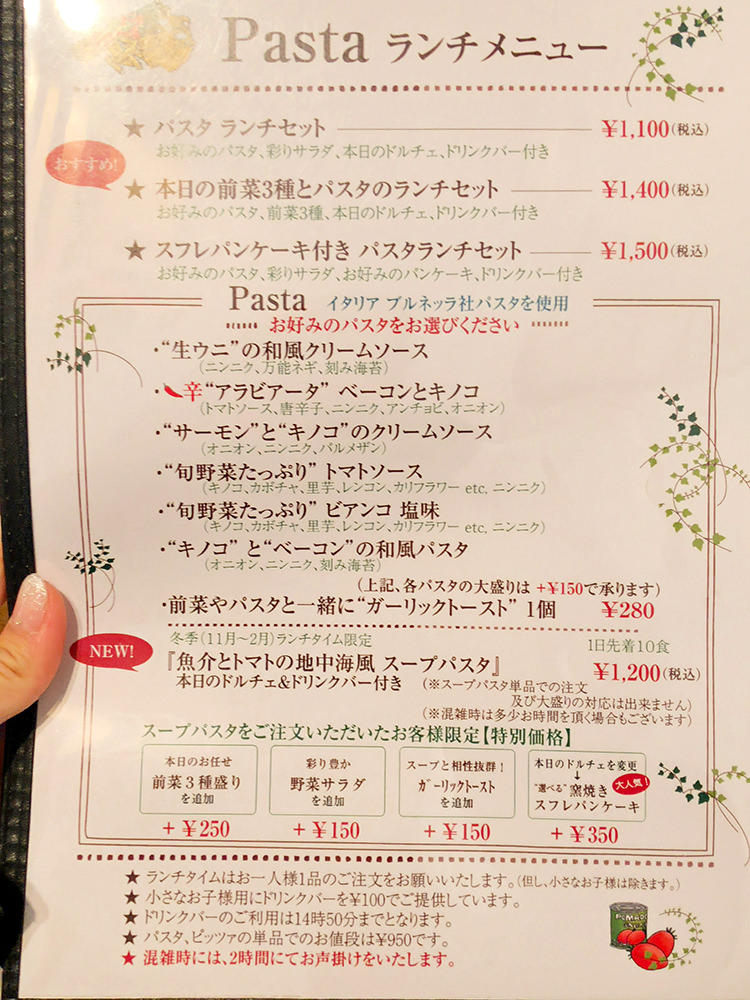 Pasta ランチメニュー
★ パスタ ランチセット ¥1,100(税込)
お好みのパスタ、彩りサラダ、本日のドルチェ、ドリンクバー付き
おすすめ!
★ 本日の前菜3種とパスタのランチセット ¥1,400(税込)
お好みのパスタ、前菜3種、本日のドルチェ、ドリンクバー付き
★ スフレパンケーキ付き パスタランチセット ¥1,500(税込)
お好みのパスタ、彩りサラダ、お好みのパンケーキ、ドリンクバー付き
Pasta イタリア ブルネッラ社パスタを使用
お好みのパスタをお選びください
・“生ウニ”の和風クリームソース
(ニンニク、万能ネギ、刻み海苔)
・辛“アラビアータ” ベーコンとキノコ
(トマトソース、唐辛子、ニンニク、アンチョビ、オニオン)
・“サーモン”と“キノコ”のクリームソース
(オニオン、ニンニク、パルメザン)
・“旬野菜たっぷり” トマトソース
(キノコ、カボチャ、里芋、レンコン、カリフラワー etc, ニンニク)
・“旬野菜たっぷり” ビアンコ 塩味
(キノコ、カボチャ、里芋、レンコン、カリフラワー etc, ニンニク)
・“キノコ” と“ベーコン”の和風パスタ
(オニオン、ニンニク、刻み海苔)
(上記、各パスタの大盛りは +¥150で承ります)
・前菜やパスタと一緒に“ガーリックトースト” 1個 ¥280
冬季(11月〜2月)ランチタイム限定 1日先着10食
NEW!
『魚介とトマトの地中海風 スープパスタ』 ¥1,200(税込)
本日のドルチェ&ドリンクバー付き (※スープパスタ単品での注文
及び大盛りの対応は出来ません)
(※混雑時は多少お時間を頂く場合もございます)
スープパスタをご注文いただいたお客様限定【特別価格】
本日のお任せ
前菜3種盛り
を追加
+¥250
彩り豊か
野菜サラダ
を追加
+¥150
スープと相性抜群!
ガーリックトースト
を追加
+¥150
本日のドルチェを変更
↓
“選べる”窯焼き 大人気!
スフレパンケーキ
+¥350
★ ランチタイムはお一人様1品のご注文をお願いいたします。(但し、小さなお子様は除きます。)
★ 小さなお子様用にドリンクバーを¥100でご提供しています。
★ ドリンクバーのご利用は14時50分までとなります。
★ パスタ、ピッツァの単品でのお値段は¥950です。
★ 混雑時には、2時間にてお声掛けをいたします。